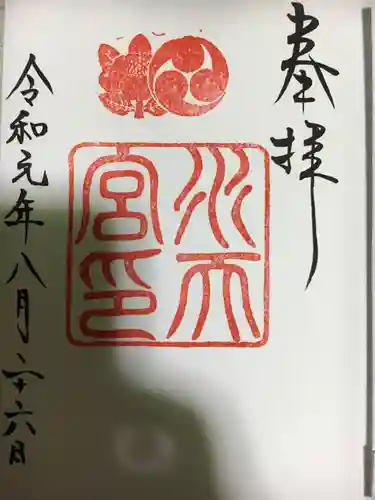 奉拝
水天
宮印
令和元年八月二十六日